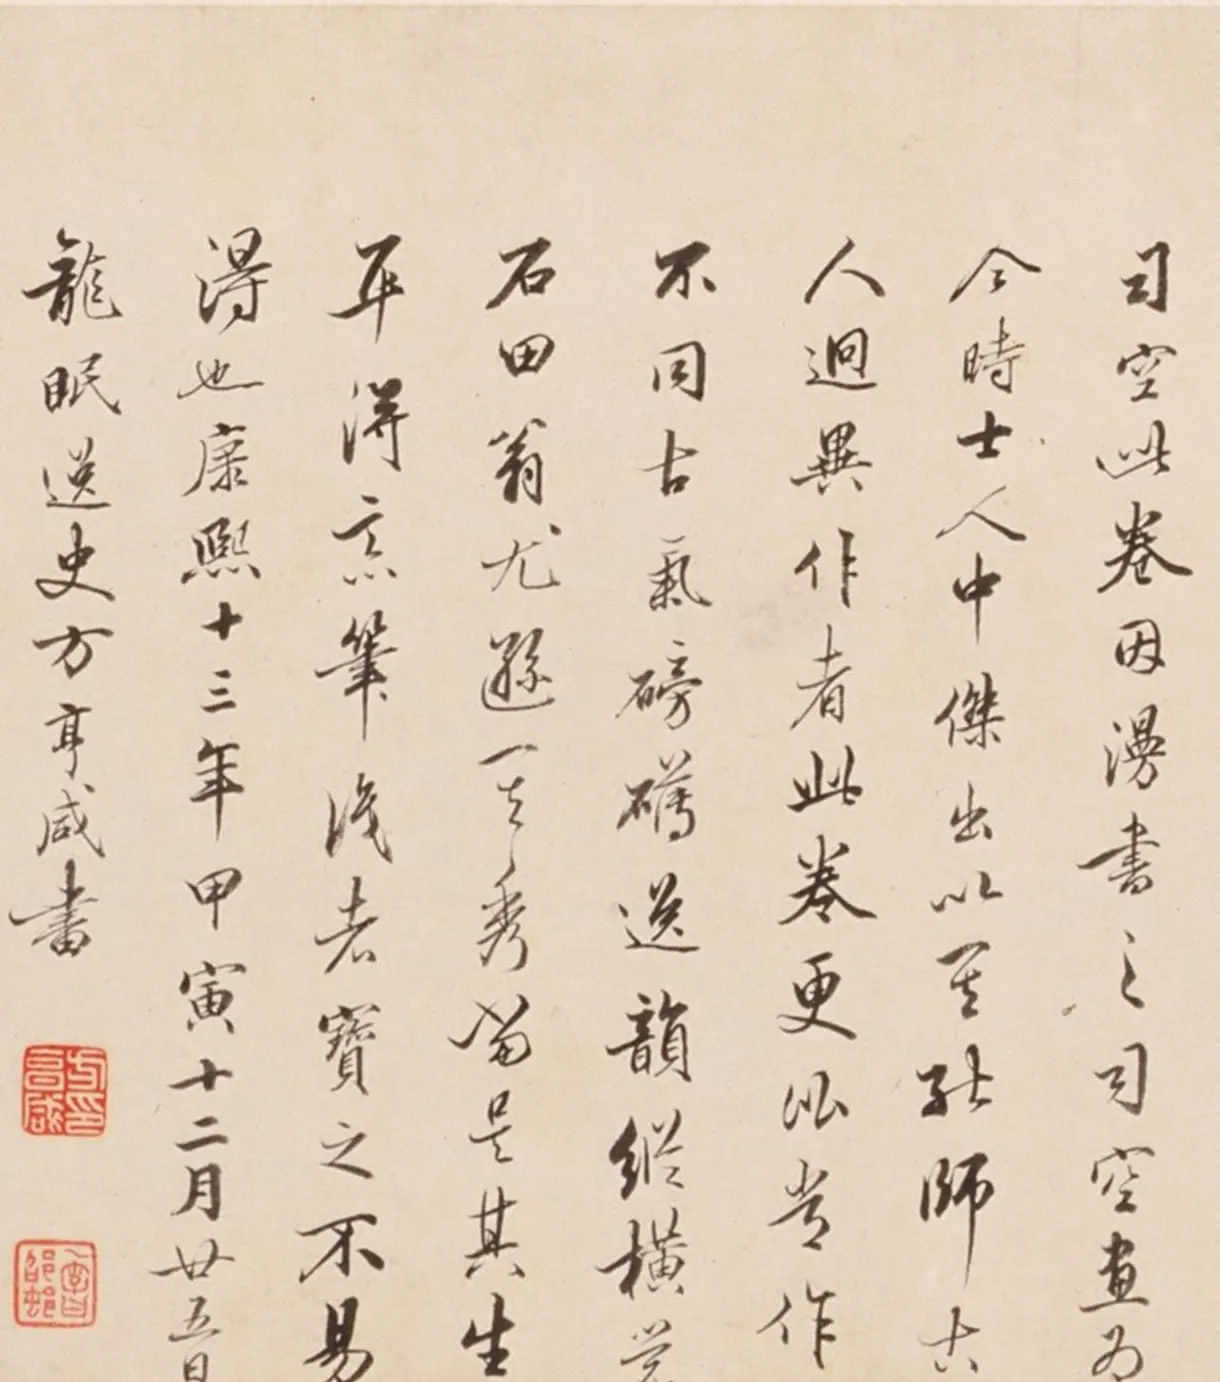 司空此卷因漫書之司空畫為
今時士人中傑出以其能師古
人迥異作者此卷更似昔作
不同古氣磅礴逸韻縱橫覺
石田翁尤遜一其秀當是其生
平得意筆後者寶之不易
得也康熙十三年甲寅十二月廿五日
龍眠逸史方亨咸書
方亨咸印
邵邨